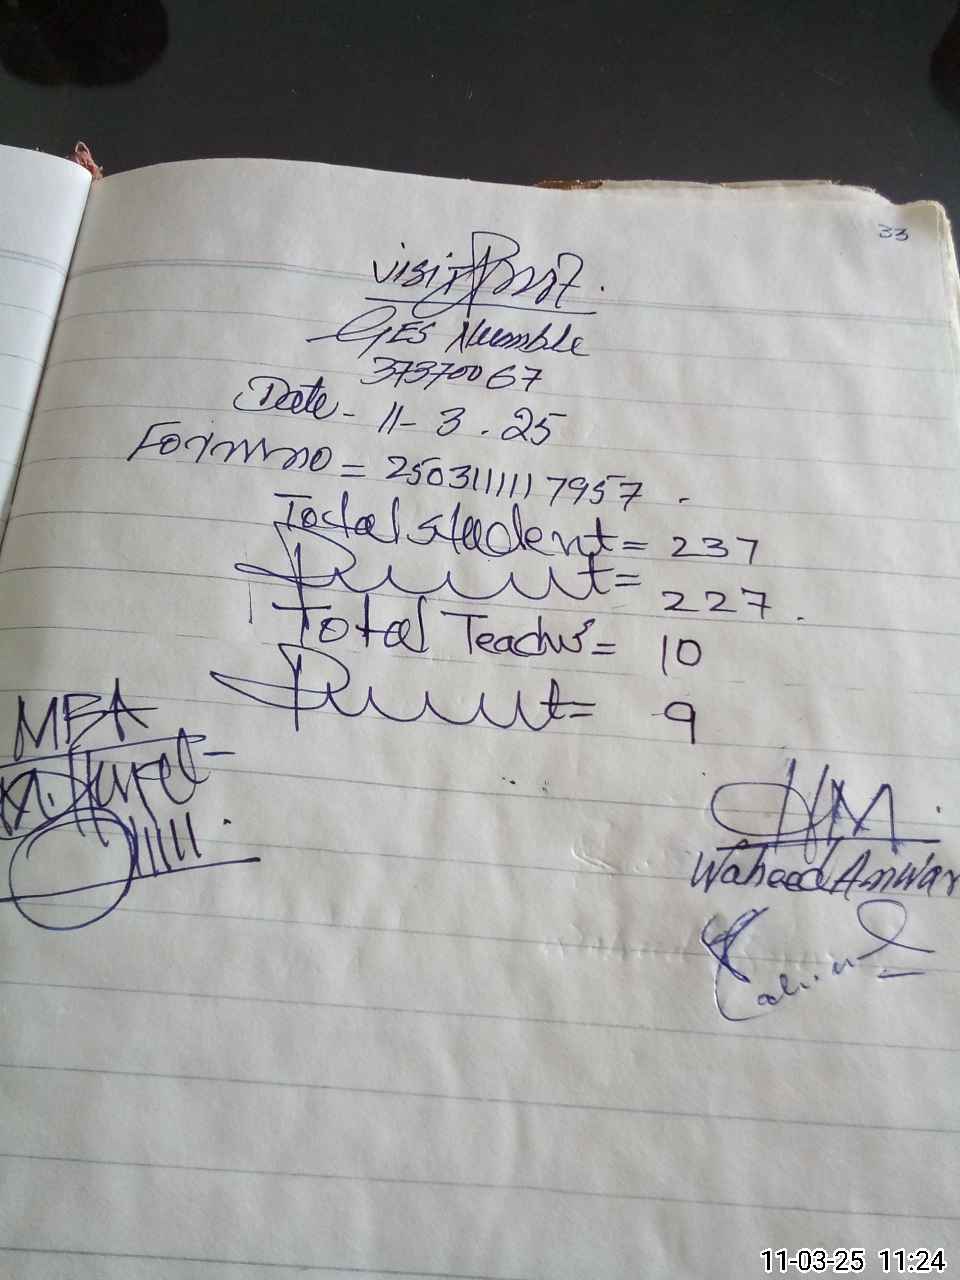 33
visit
GES Numble
37370067
Date - 11 - 3 . 25
Form no = 250311111 7957 .
Total student = 237
Present = 227 .
Total Teachrs = 10
Present = 9
MBA
HM .
Waheed Anwar
11-03-25 11:24